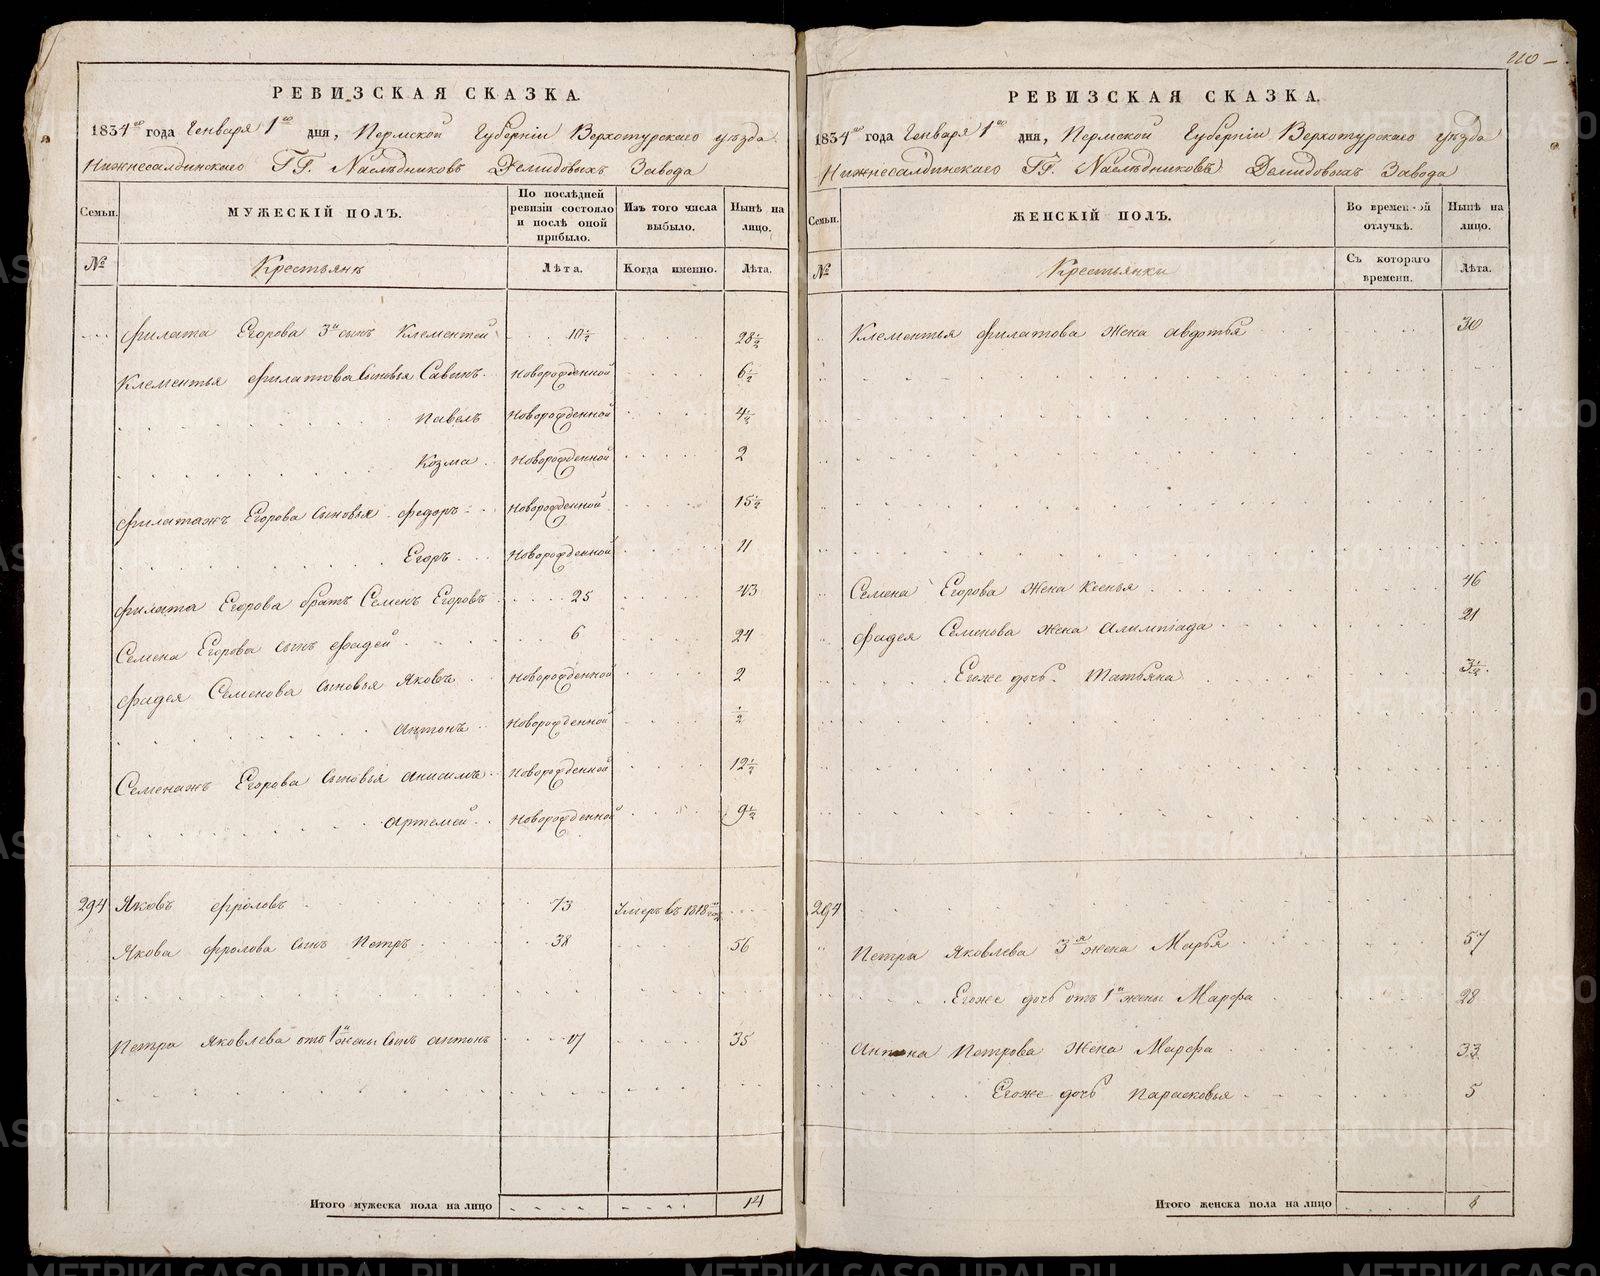 110
РЕВИЗСКАЯ СКАЗКА.
1834го года Генваря 1го дня, Пермской Губерніи Верхотурскаго уѣзда
Нижнесалдинскаго ГГ. Наслѣдниковъ Демидовыхъ Завода
Семьи. МУЖЕСКІЙ ПОЛЪ. По послѣдней ревизіи состояло и послѣ оной прибыло. Изъ того числа выбыло. Нынѣ на лицо.
№ Крестьянъ Лѣта. Когда именно. Лѣта.
Филата Егорова 3й сынъ Клементей 10½ 28½
Клементья Филатова сыновья Савинъ Новорожденной 6½
Павелъ Новорожденной 4½
Козма Новорожденной 2
Филатажъ Егорова сыновья Федоръ Новорожденной 15½
Егоръ Новорожденной 11
Филата Егорова братъ Семенъ Егоровъ 25 43
Семена Егорова сынъ Фадей 6 24
Фадея Семенова сыновья Яковъ Новорожденной 2
Антонъ Новорожденной ½
Семенажъ Егорова сыновья Анисимъ Новорожденной 12½
Артемей Новорожденной 9½
294 Яковъ Фроловъ 73 Умеръ въ 1818м году
Якова Фролова сынъ Петръ 38 56
Петра Яковлева отъ 1й жены сынъ Антонъ 17 35
Итого мужеска пола на лицо 14
РЕВИЗСКАЯ СКАЗКА.
1834го года Генваря 1го дня, Пермской Губерніи Верхотурскаго уѣзда
Нижнесалдинскаго ГГ. Наслѣдниковъ Демидовыхъ Завода
Семьи. ЖЕНСКІЙ ПОЛЪ. Во временной отлучкѣ. Нынѣ на лицо.
№ Крестьянки Съ котораго времени. Лѣта.
Клементья Филатова жена Авдотья 30
Семена Егорова жена Ксенья 46
Фадея Семенова жена Алимпіада 21
Егоже дочь Татьяна 3½
294
Петра Яковлева 3я жена Марья 57
Егоже дочь отъ 1й жены Марфа 28
Антона Петрова жена Марфа 33
Егоже дочь Парасковья 5
Итого женска пола на лицо 8
METRIKI.GASO-URAL.RU